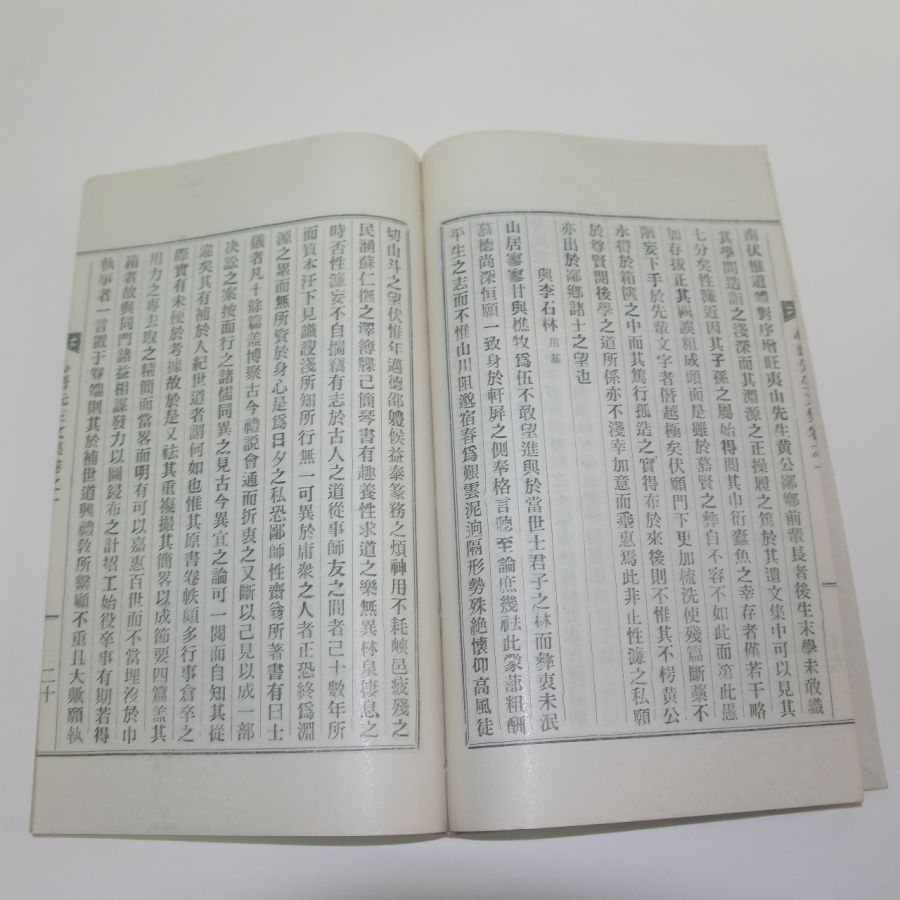 南伏惟道體對序增旺夷山先生黃公鄙鄉前輩長者後生末學未敢識
其學問造詣之淺深而其淵源之正操履之篤於其遺文集中可以見其
七分矣性濂近因其子孫之恳始得閱其巾衍蠹魚之幸存者僅若干略
加存拔正其闕誤粗成頭面是雖於慕賢之彝自不容不如此而第此愚
陋妄下手於先輩文字者僭越極矣伏願門下更加梳洗使殘篇斷藁不
永欎於箱篋之中而其篤行孤造之實得布於來後則不惟其不愕黃公
於尊賢開後學之道所係亦不淺幸加意而垂惠焉此非止性濂之私願
亦出於鄙鄉諸士之望也
與李石林用基
山居寥寥甘與樵牧爲伍不敢望進與於當世士君子之林而彝衷未泯
慕德尚深恒願一致身於軒屏之側奉格言聽至論庶幾祛此蒙蔀粗酬
平生之志而不惟山川阻邈宿舂爲艱雲泥逈隔形勢殊絶懷仰高風徒
切山斗之望伏惟年邁德邵軆候益泰篆務之煩神用不耗峽邑疲殘之
民涵蘇仁撫之澤簿牒己簡琴書有趣養性求道之樂無異林泉棲息之
時否性濂妄不自揣竊有志於古人之道從事師友之間者己十數年所
而質本汙下見識謏淺所知所行無一可異於庸衆之人者正恐終爲淵
源之累而無所資於身心是爲日夕之私恐鄙師性齋翁所著書有曰士
儀者凡十餘篇盖博聚古今禮說會通而折衷之又斷以己見以成一部
决訟之案按而行之諸儒同異之見古今異宜之論可一閱而自知其從
違矣其有補於人紀世道者謂何如也惟其原書卷帙頗多行事倉卒之
際實有未便於考據故於是又祛其重複撮其簡畧以成節要四篇盖其
用力之專去取之精簡而當畧而明有可以嘉惠百世而不當埋沒於巾
箱者故與同門諸益相謀發力以圖鋟布之計招工始役卒事有期若得
執事者一言置于卷端則其於補世道興禮敎所繫顧不重且大歟願執
二十